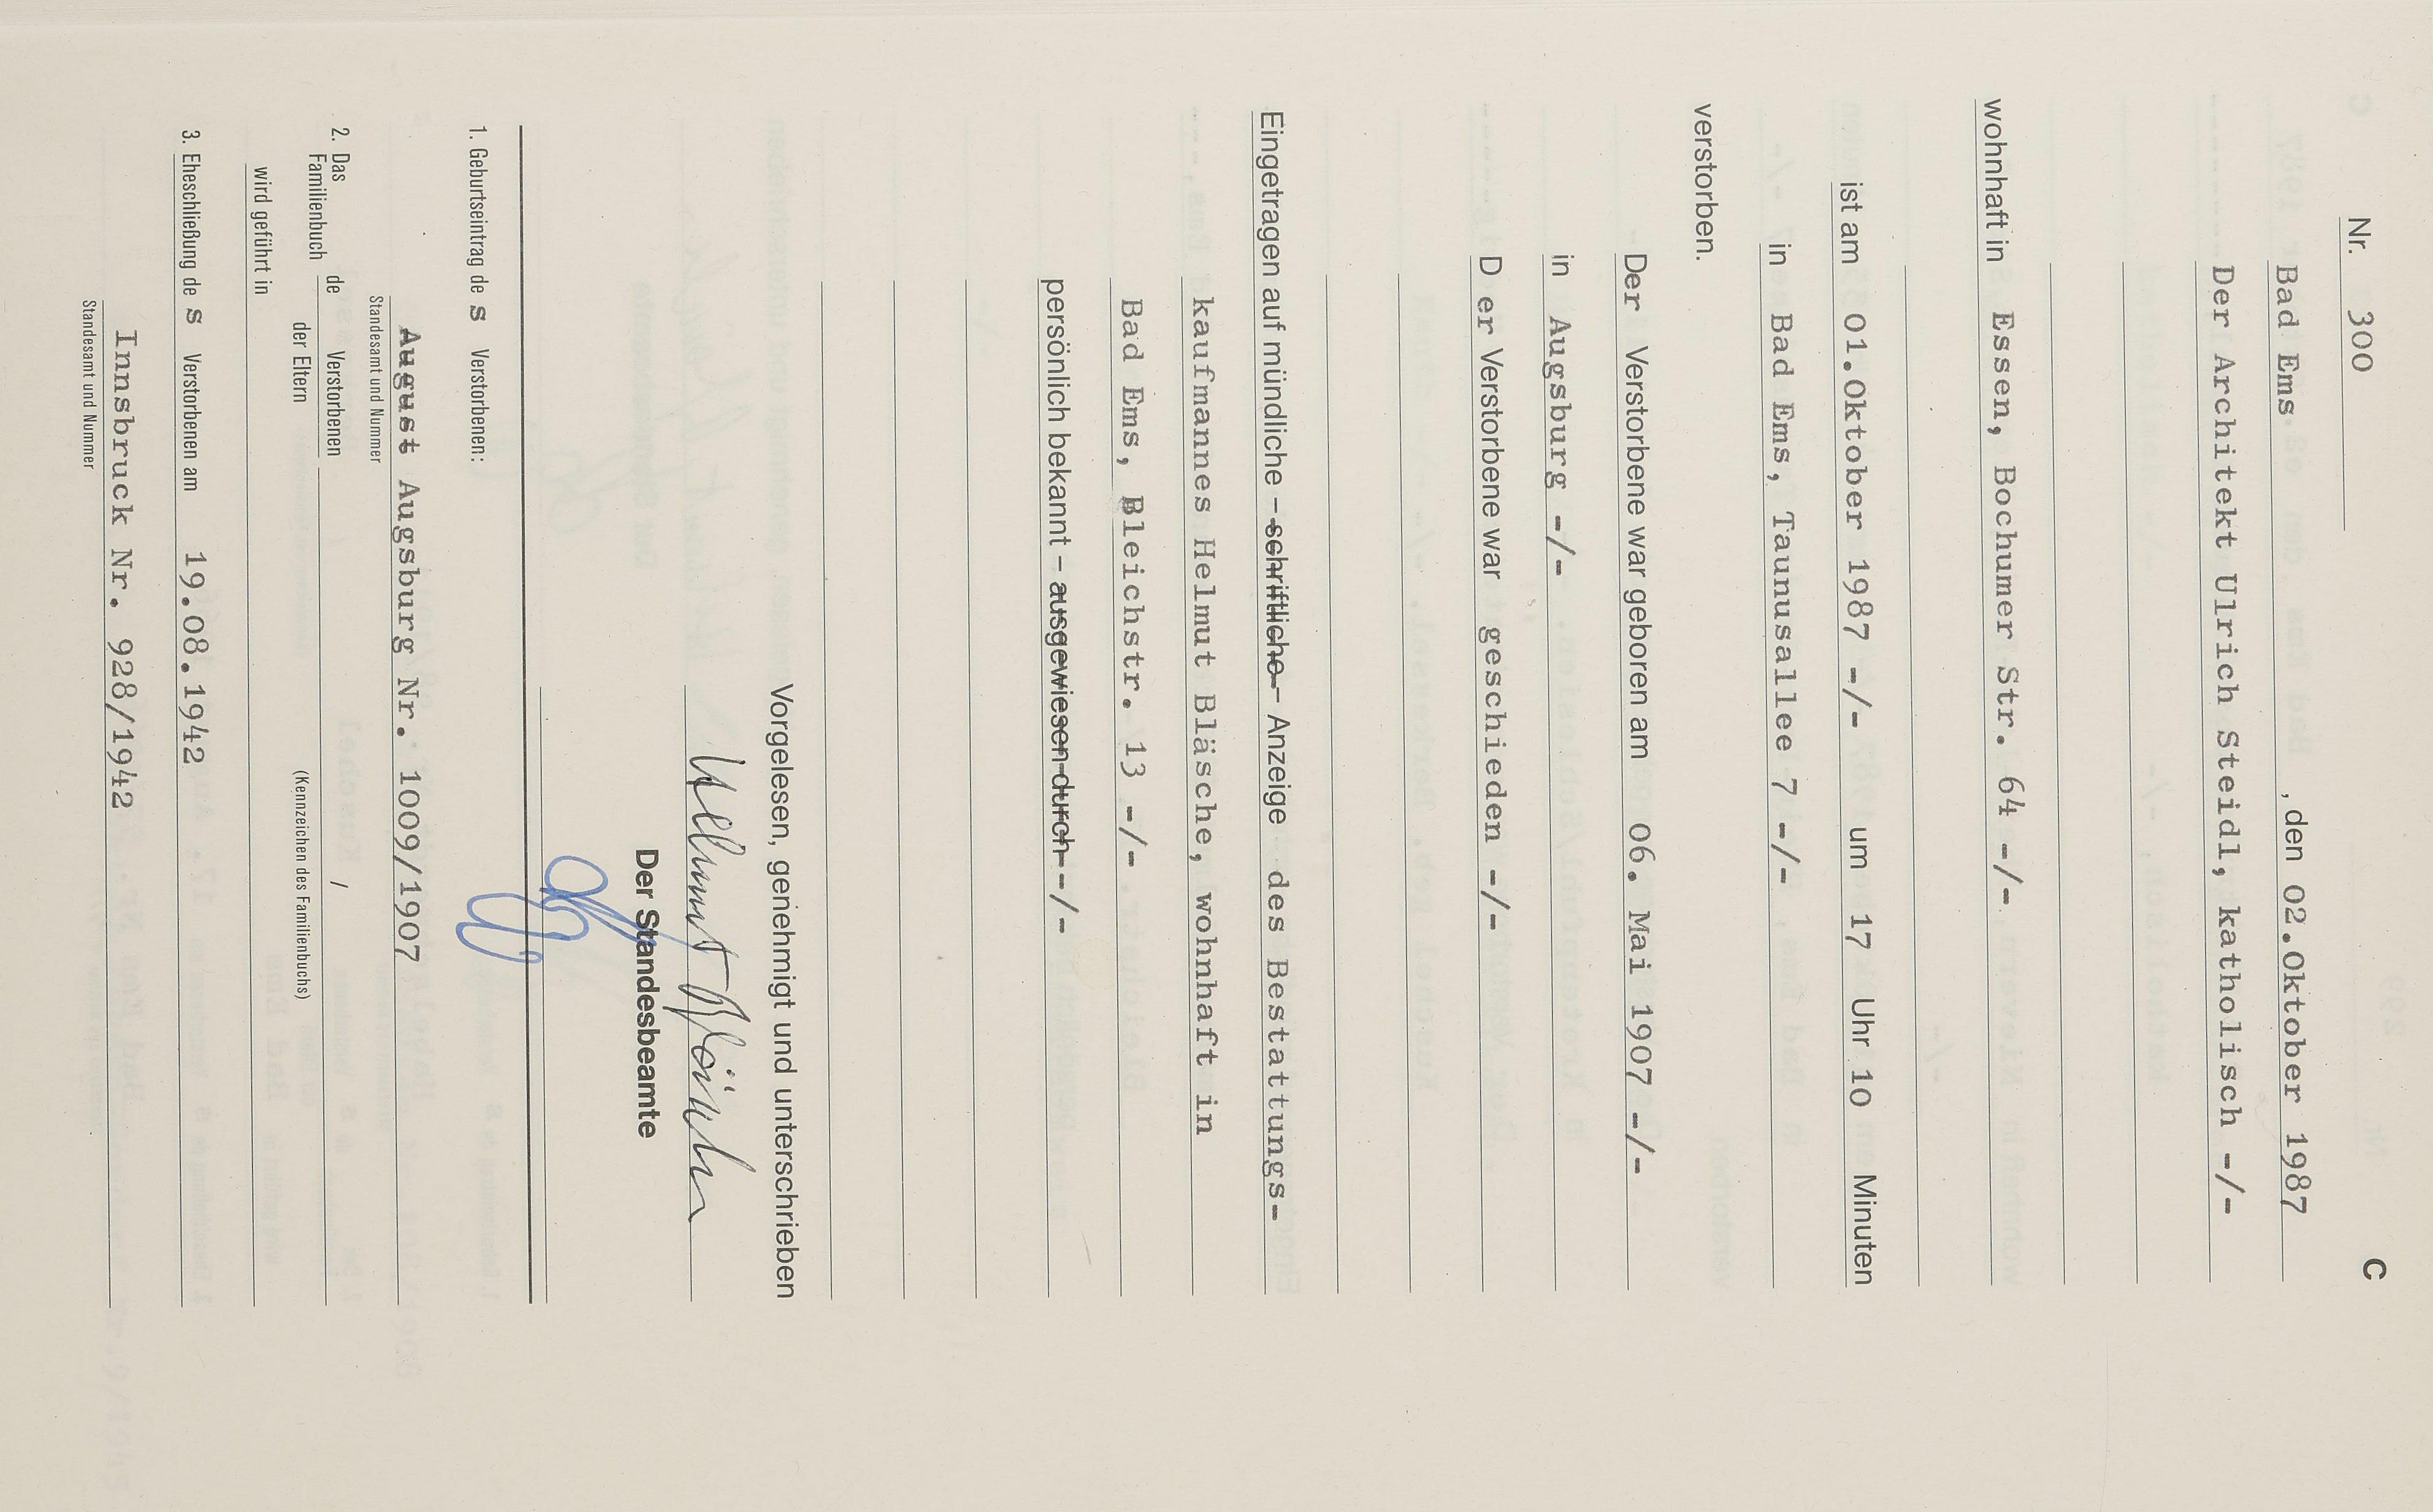 C
Nr. 300
Bad Ems , den 02.Oktober 1987
Der Architekt Ulrich Steidl, katholisch -/-
wohnhaft in Essen, Bochumer Str. 64 -/-
ist am 01.Oktober 1987 -/- um 17 Uhr 10 Minuten
in Bad Ems, Taunusallee 7 -/-
verstorben.
Der Verstorbene war geboren am 06. Mai 1907 -/-
in Augsburg -/-
D er Verstorbene war geschieden -/-
Eingetragen auf mündliche – schriftliche – Anzeige des Bestattungs-
kaufmannes Helmut Bläsche, wohnhaft in
Bad Ems, Bleichstr. 13 -/-
persönlich bekannt – ausgewiesen durch -/-
Vorgelesen, genehmigt und unterschrieben
Helmut Bläsche
Der Standesbeamte
1. Geburtseintrag de s Verstorbenen:
August Augsburg Nr. 1009/1907
Standesamt und Nummer
2. Das Familienbuch de Verstorbenen /
der Eltern (Kennzeichen des Familienbuchs)
wird geführt in
3. Eheschließung de s Verstorbenen am 19.08.1942
Innsbruck Nr. 928/1942
Standesamt und Nummer